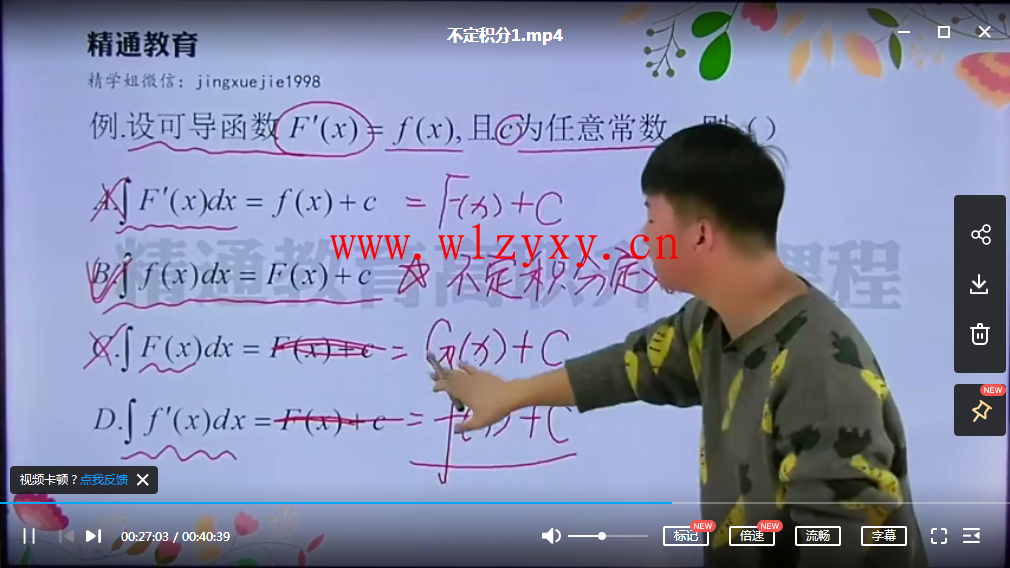 不定积分1.mp4
精通教育
精学姐微信：jingxuejie1998
例.设可导函数 F'(x) = f(x), 且c为任意常数，则（）
A.∫F'(x)dx = f(x)+c = F(x)+C
www.wlzyxy.cn
B.∫f(x)dx = F(x)+c ☆ 不定积分定义
C.∫F(x)dx = F(x)+c = G(x)+C
D.∫f'(x)dx = F(x)+c = f(x)+C
NEW
视频卡顿？点我反馈
00:27:03 / 00:40:39
标记 NEW
倍速 NEW
流畅
字幕